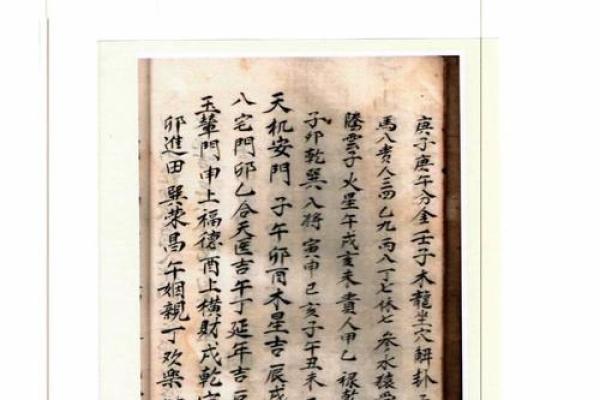 庚子庚午分金壬子木龍坐穴解卦
馬八貴人三四乙九丙八丁七休七參水猿
騰雲子火星午戌亥未貴人甲乙祿
子卯乾巽八將寅申巳亥子午丑未
天机安門子午卯酉木星吉辰戌
八宅門卯乙合天医吉午丁延年吉
玉輦門申上福德酉上橫財戌乾
卯進田巽荣昌午姻親丁欢樂